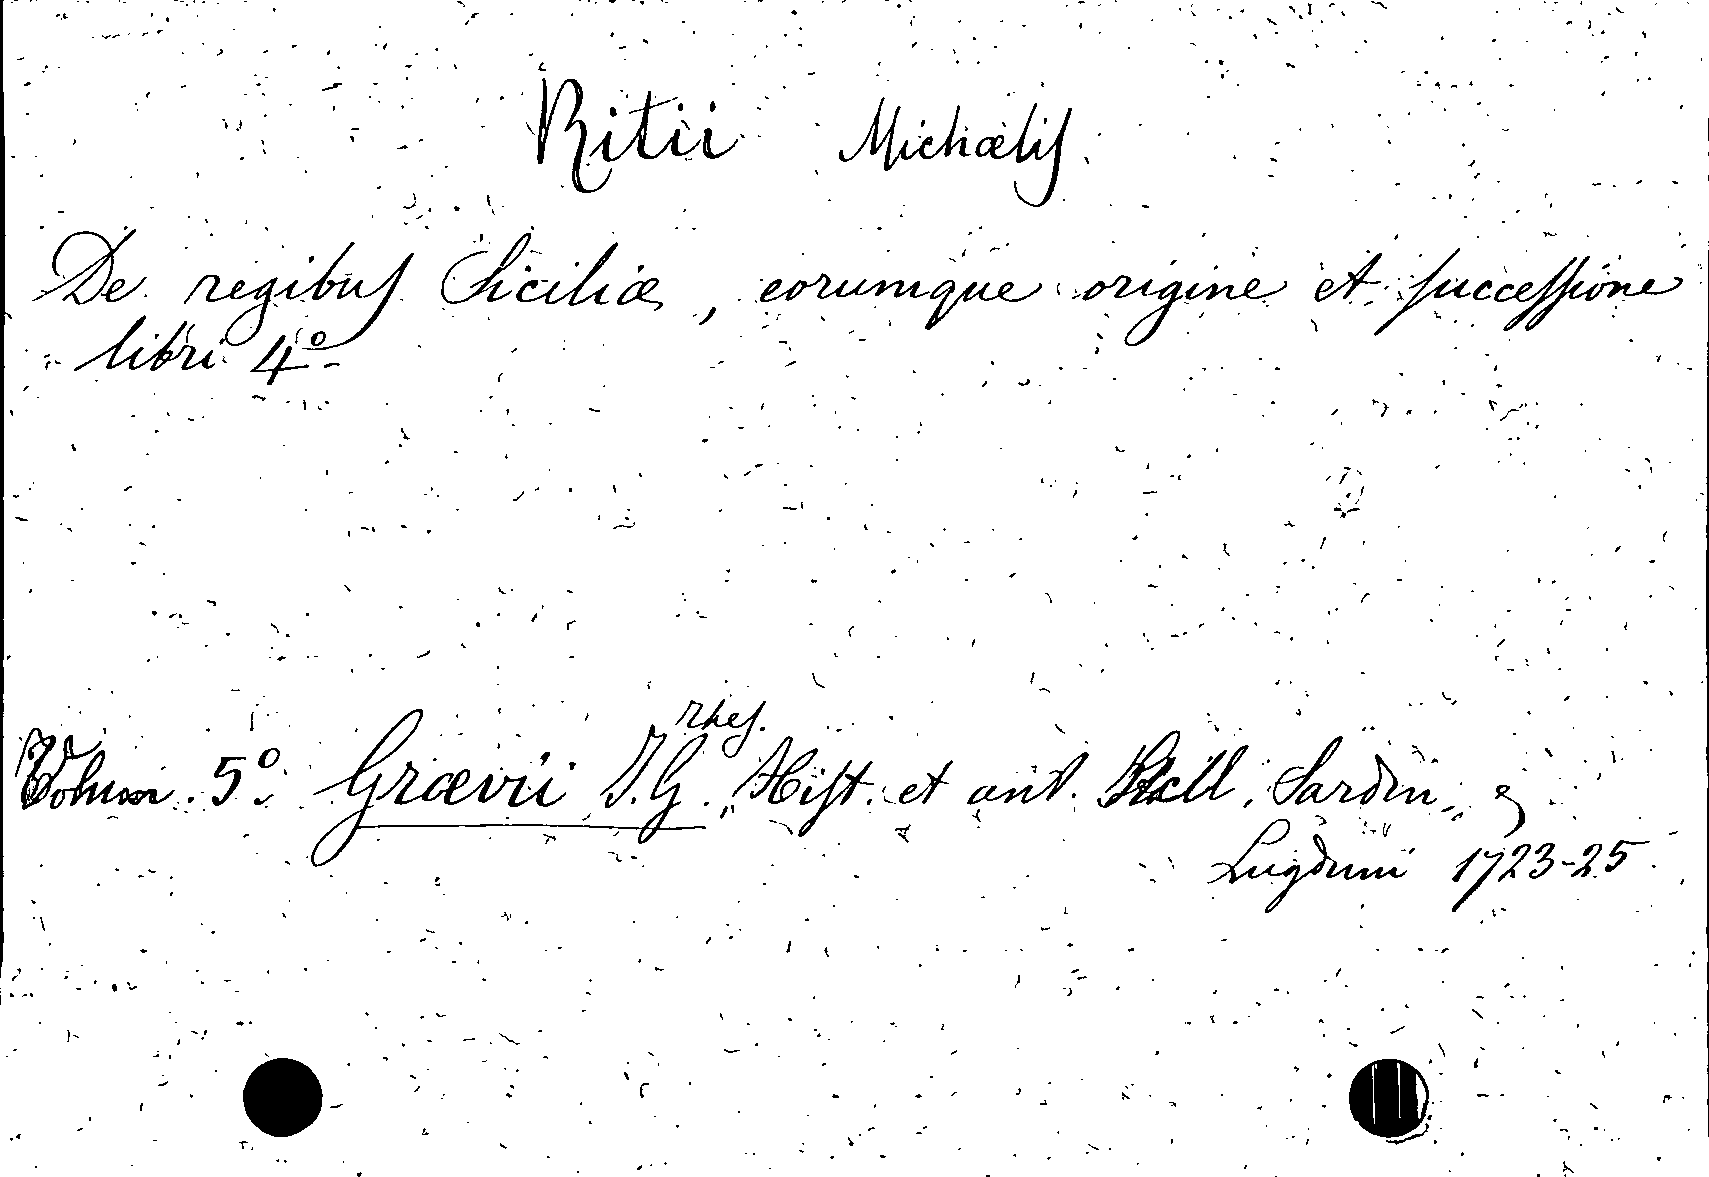 Ritii Michaelis
De regibus Siciliæ, eorumque origine et successione
libri 4°
Thes.
Volum. 5° Grævii J. G. Hist. et ant. Sardin.
Lugduni 1723-25